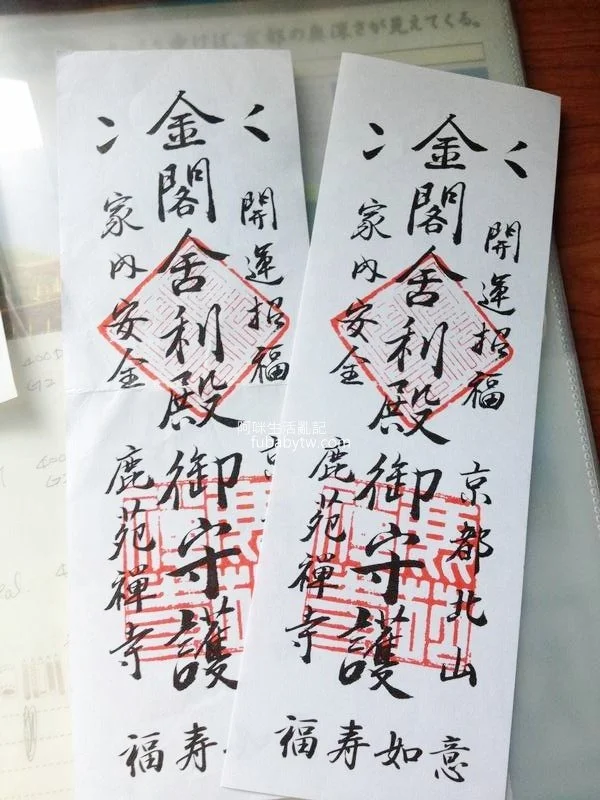 京都の奥深さが見えてくる。
開運招福
金閣舎利殿御守護
家内安全
京
鹿苑禪寺
福寿
開運招福
金閣舎利殿御守護
家内安全
京都北山
鹿苑禪寺
福寿如意
阿咪生活亂記
fubabytw.com